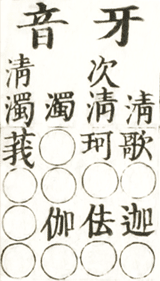 牙音
清
次清
濁
清濁
歌○珂莪
○○○○
迦佉伽○
○○○○